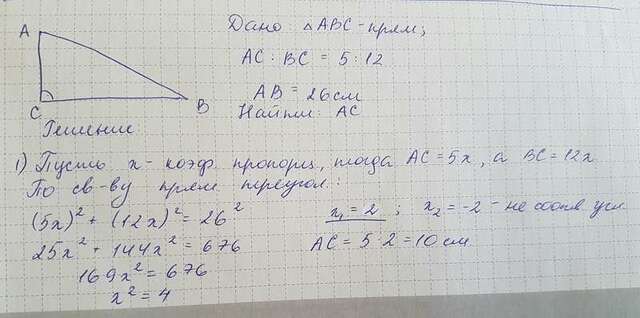 Дано: △ABC - прям;
AC : BC = 5 : 12
AB = 26 см
Найти: AC
A
C
B
Решение:
1) Пусть x - коэф. пропорц., тогда AC = 5x, а BC = 12x.
По св-ву прям. треугол.:
(5x)² + (12x)² = 26²
25x² + 144x² = 676
169x² = 676
x² = 4
x₁ = 2 ; x₂ = -2 - не соотв. усл.
AC = 5 · 2 = 10 см.